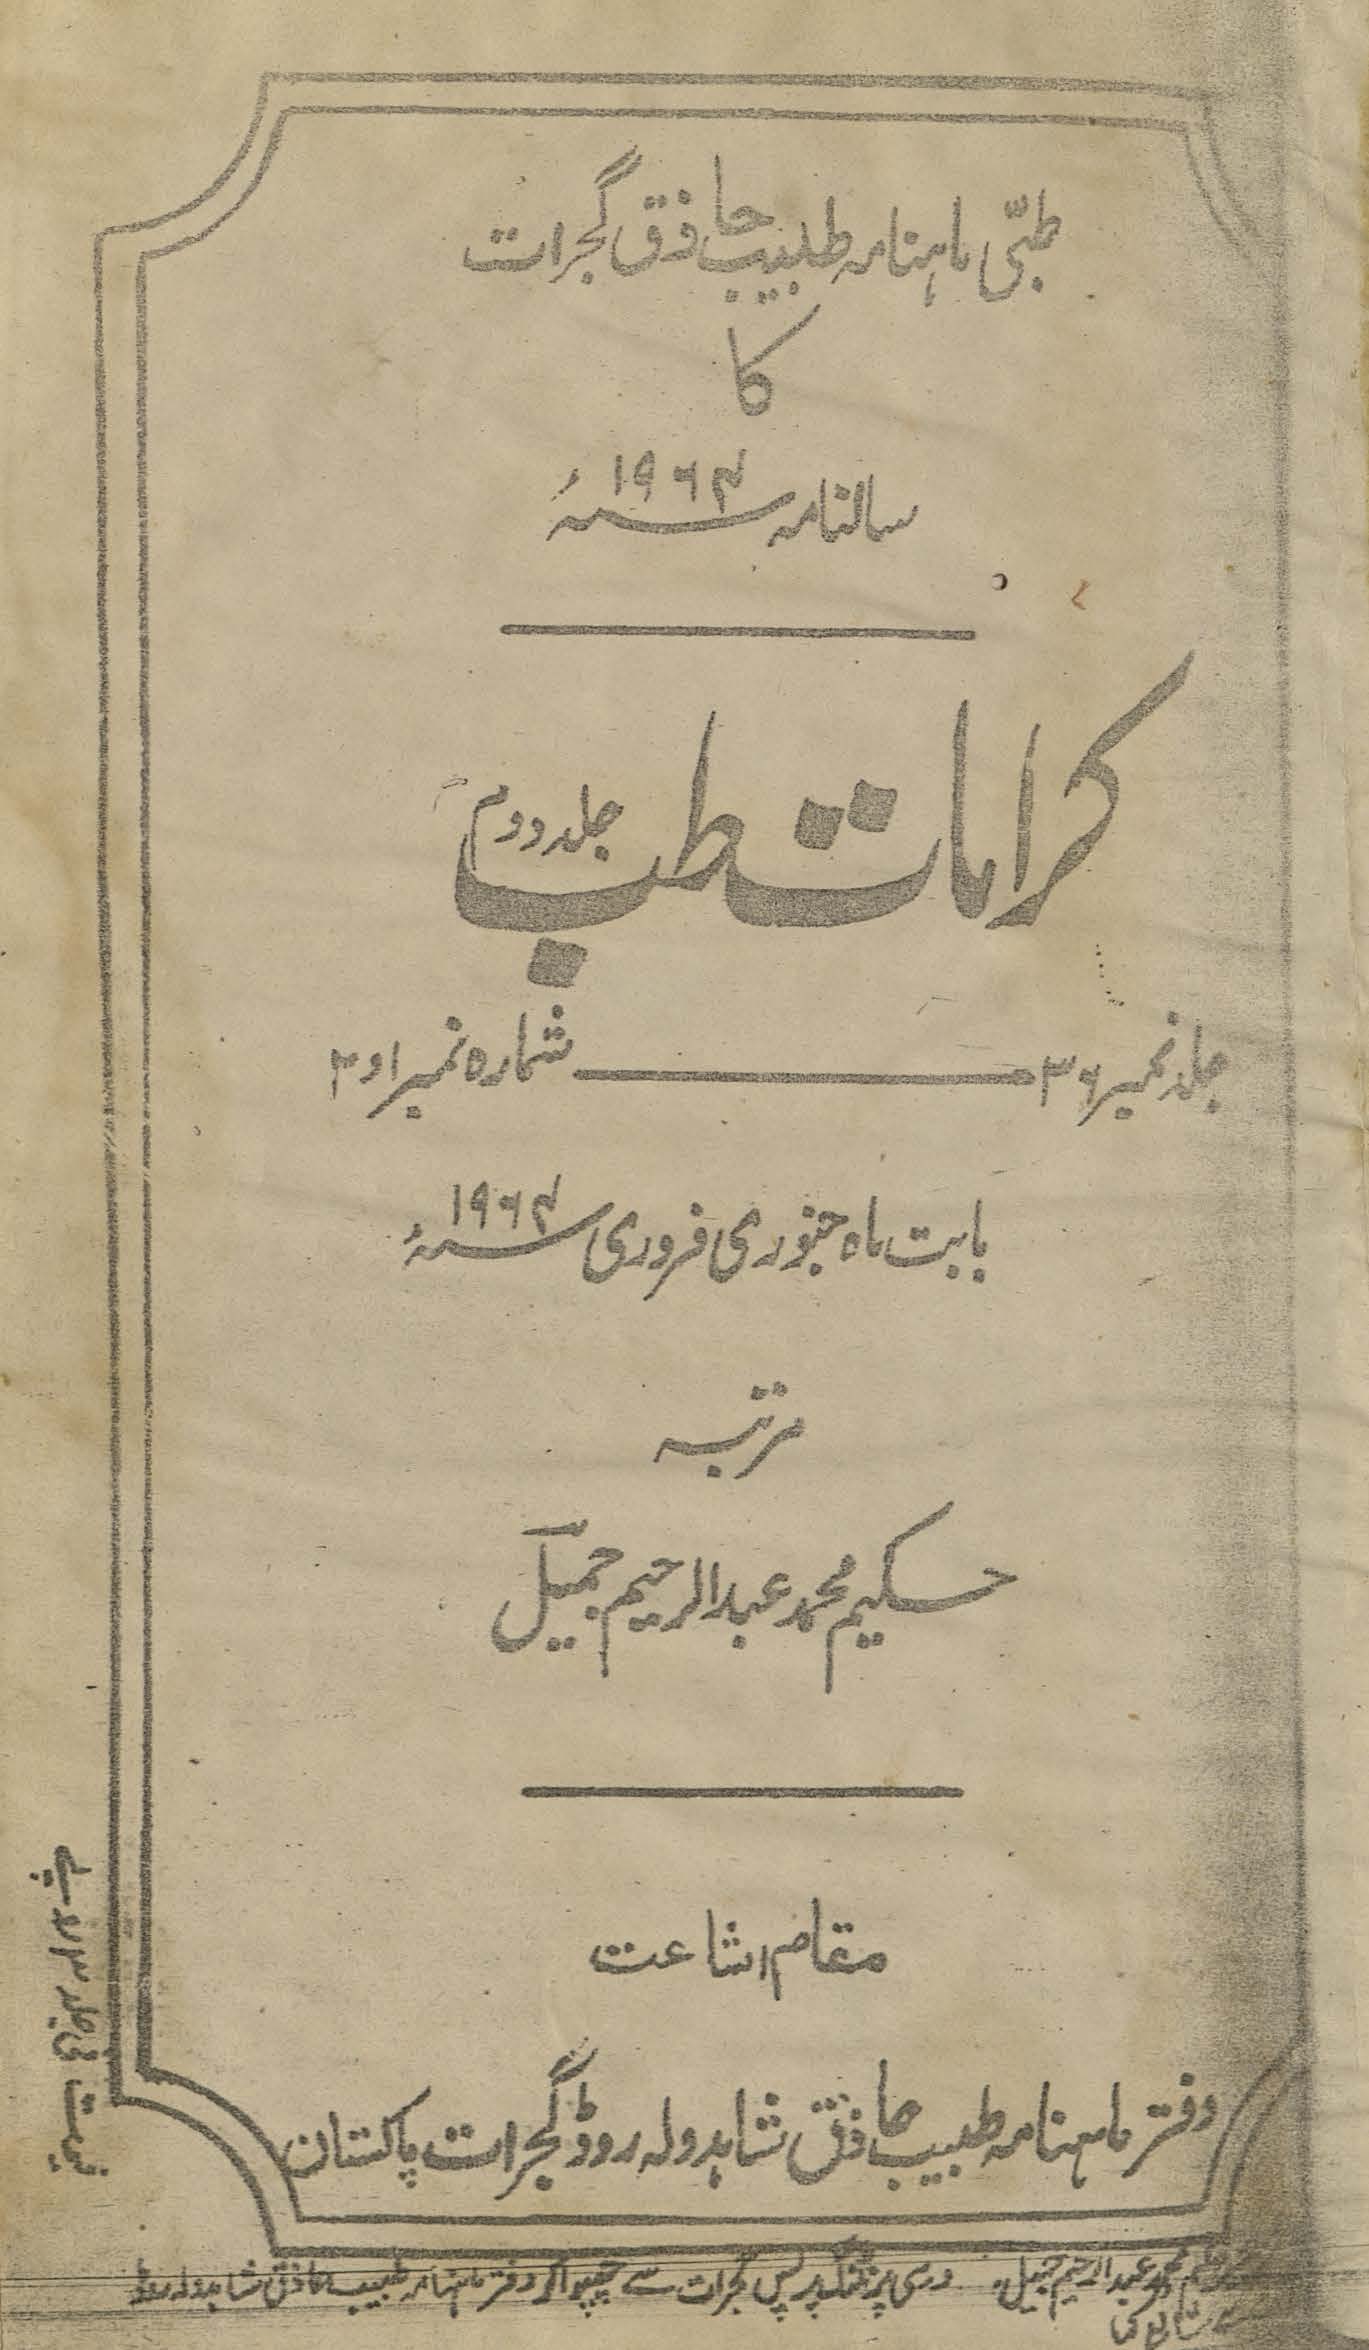 طبّی ماہنامہ طبیب حاذق گجرات
کا
سالنامہ ۱۹۶۴ء
کرامات طب جلد دوم
جلد نمبر ۳۶ ـــــــ شمارہ نمبر ۱ و ۲
بابت ماہ جنوری فروری ۱۹۶۴ء
مرتبہ
حکیم محمد عبدالرحیم جمیل
مقام اشاعت
دفتر ماہنامہ طبیب حاذق شاہدولہ روڈ گجرات پاکستان
محمد عبدالرحیم جمیل پرنٹنگ پریس گجرات سے چھپوا کر دفتر ماہنامہ طبیب حاذق شاہدولہ روڈ
سے شائع کیا
قیمت فی جلد